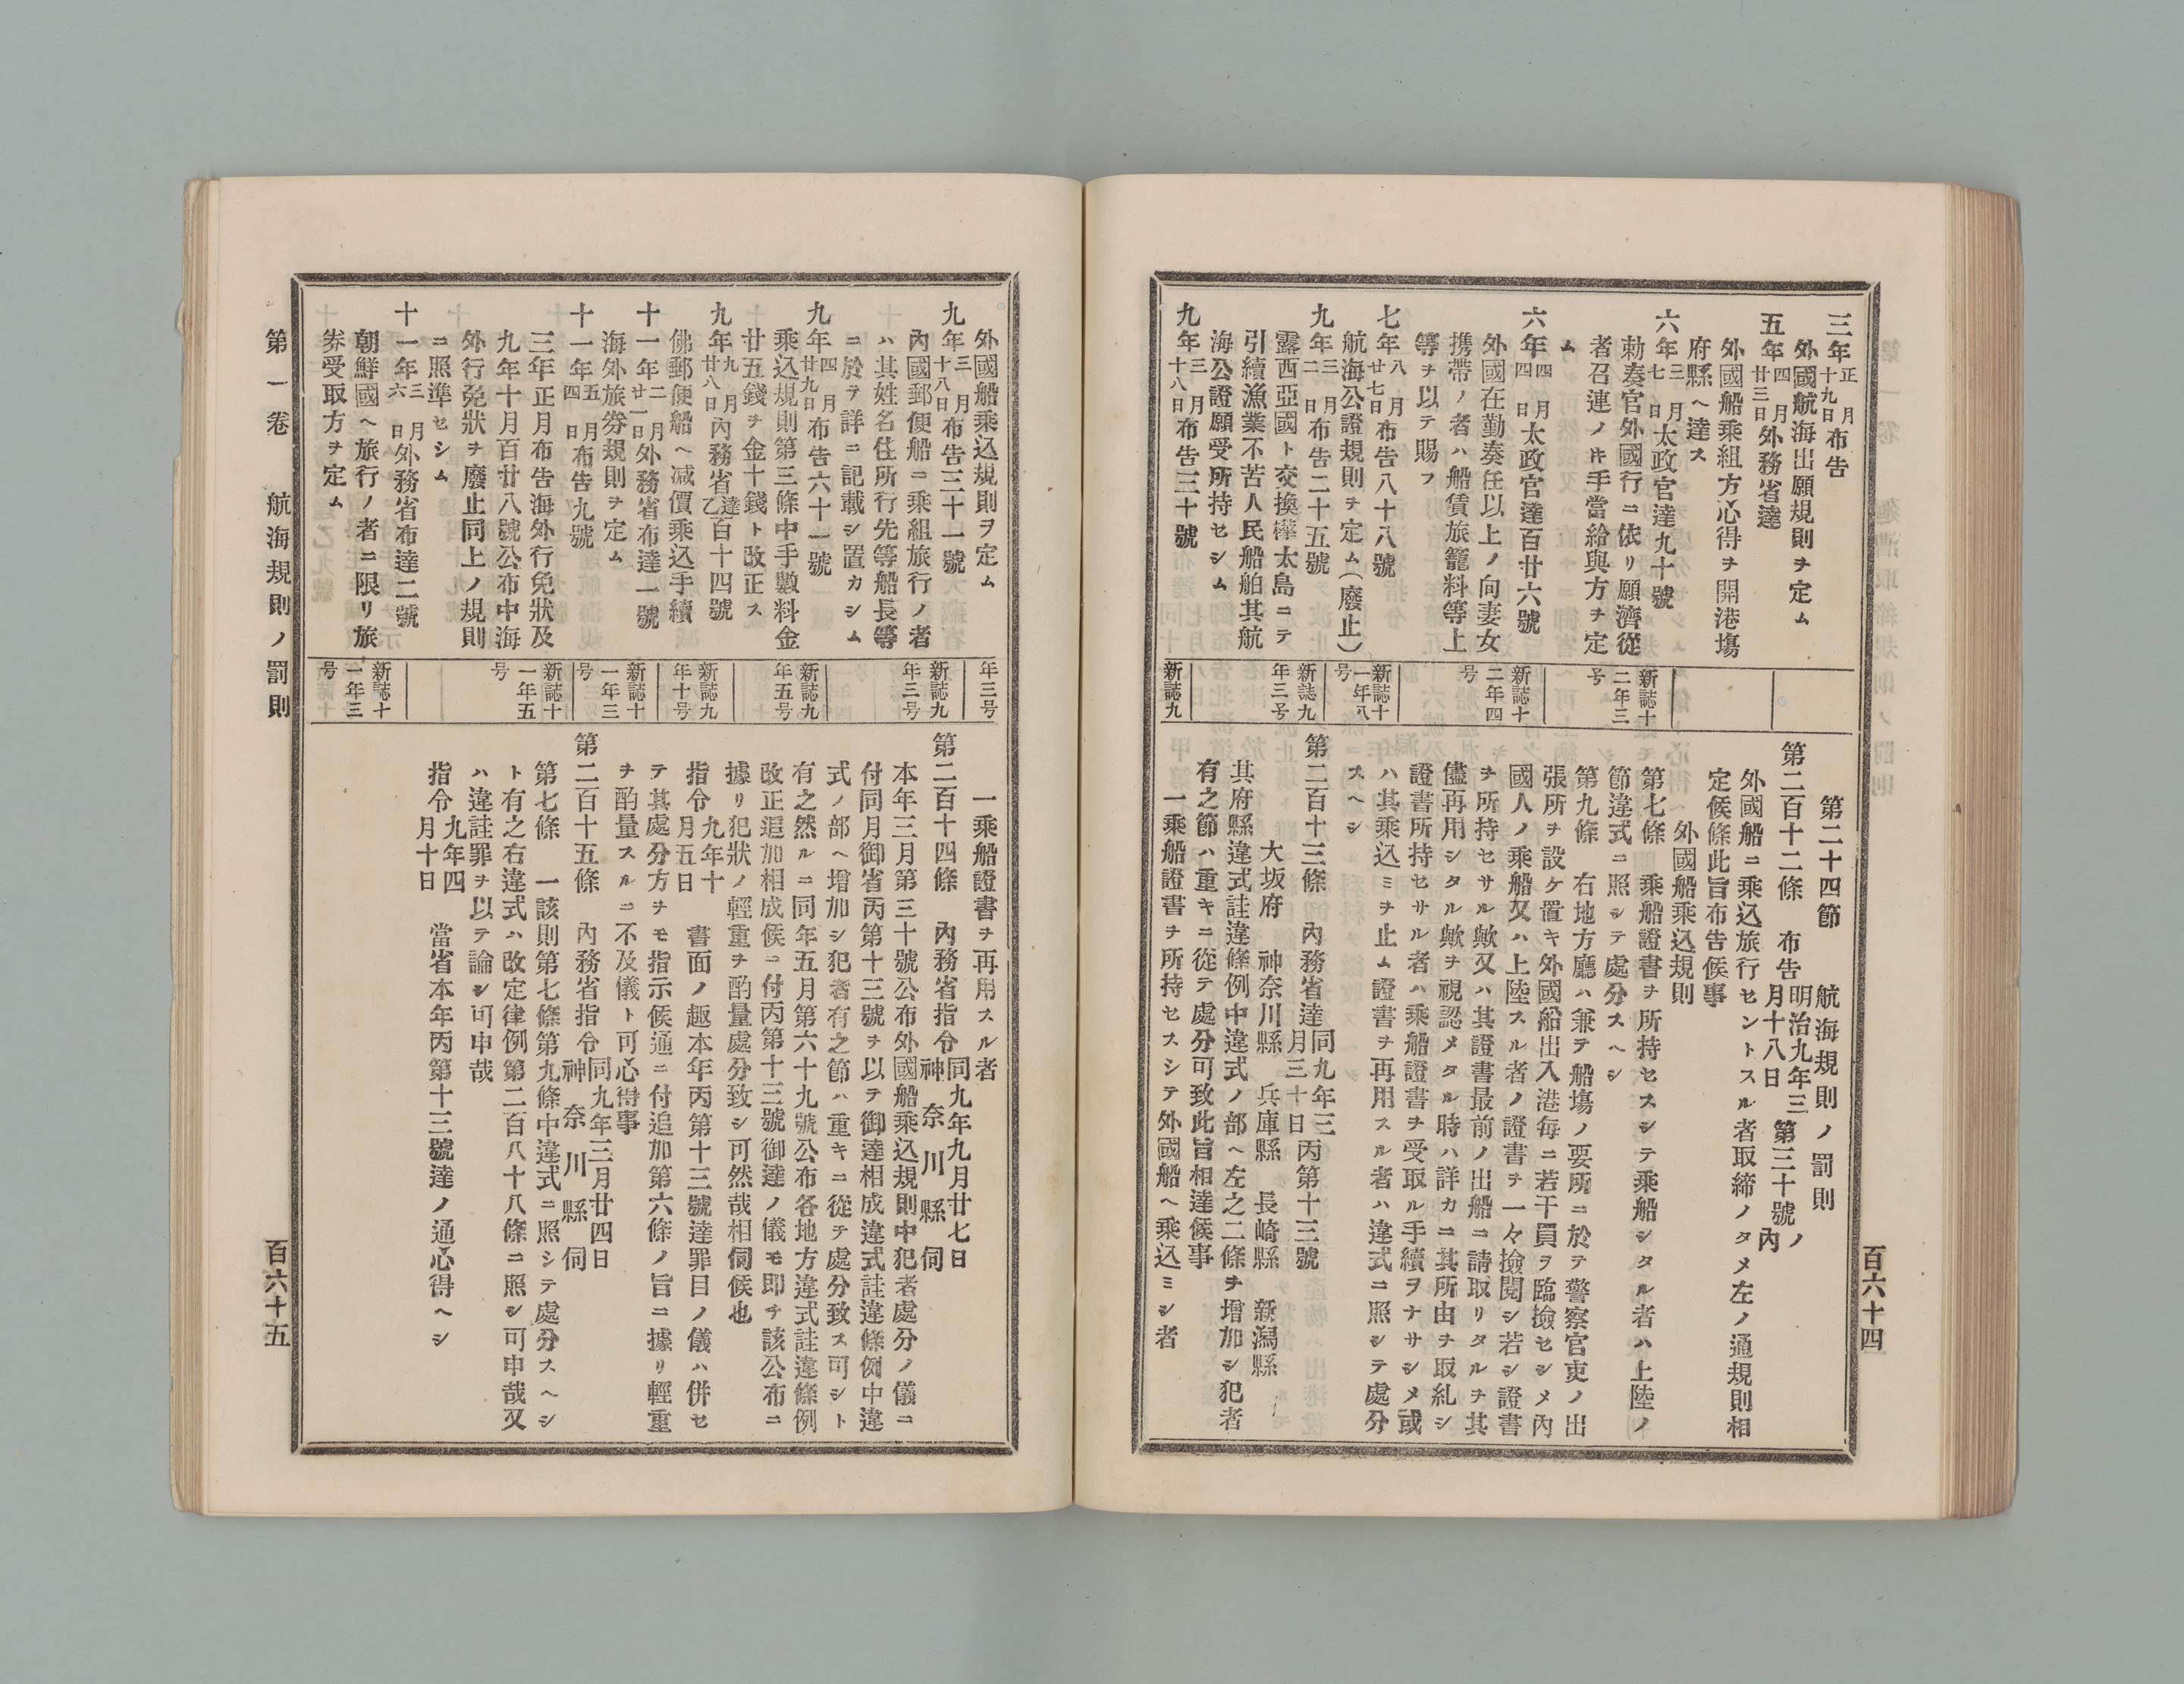 三年正月十九日布告
外國航海出願規則ヲ定ム
五年四月廿三日外務省達
外國船乘組方心得ヲ開港塲
府縣ヘ達ス
六年三月七日太政官達九十號
勅奏官外國行ニ依リ願濟從
者召連ノ䏮手當給與方ヲ定
ム
六年四月四日太政官達百廿六號
外國在勤奏任以上ノ向妻女
携帶ノ者ハ船賃旅籠料等上
等ヲ以テ賜フ
七年八月廿七日布告八十八號
航海公證規則ヲ定ム(廢止)
九年三月二日布告二十五號
露西亞國ト交換樺太島ニテ
引續漁業不苦人民船舶其航
海公證願受所持セシム
九年三月十八日布告三十號
新誌十
二年三
号
新誌十
二年四
号
新誌十
一年八
号
新誌九
年三号
新誌九
第二十四節 航海規則ノ罰則
第二百十二條 布告明治九年三月十八日第三十號ノ內
外國船ニ乘込旅行セントスル者取締ノタメ左ノ通規則相
定候條此旨布告候事
外國船乘込規則
第七條 乘船證書ヲ所持セスシテ乘船シタル者ハ上陸ノ
節違式ニ照シテ處分スヘシ
第九條 右地方廳ハ兼テ船塲ノ要所ニ於テ警察官吏ノ出
張所ヲ設ケ置キ外國船出入港每ニ若干員ヲ臨撿セシメ內
國人ノ乘船又ハ上陸スル者ノ證書ヲ一々撿閱シ若シ證書
ヲ所持セサル歟又ハ其證書最前ノ出船ニ請取リタルヲ其
儘再用シタル歟ヲ視認メタル時ハ詳カニ其所由ヲ取糺シ
證書所持セサル者ハ乘船證書ヲ受取ル手續ヲナサシメ或
ハ其乘込ミヲ止ム證書ヲ再用スル者ハ違式ニ照シテ處分
スヘシ
第二百十三條 內務省達同九年三月三十日丙第十三號
大坂府 神奈川縣 兵庫縣 長崎縣 新潟縣
其府縣違式詿違條例中違式ノ部ヘ左之二條ヲ增加シ犯者
有之節ハ重キニ從テ處分可致此旨相達候事
一乘船證書ヲ所持セスシテ外國船ヘ乘込ミシ者
百六十四
外國船乘込規則ヲ定ム
九年三月十八日布告三十一號
內國郵便船ニ乘組旅行ノ者
ハ其姓名住所行先等船長等
ニ於テ詳ニ記載シ置カシム
九年四月廿九日布告六十一號
乘込規則第三條中手數料金
廿五錢ヲ金十錢ト改正ス
九年九月廿八日內務省達乙百十四號
佛郵便船ヘ减價乘込手續
十一年二月廿一日外務省布達一號
海外旅劵規則ヲ定ム
十一年五月四日布告九號
三年正月布告海外行免狀及
九年十月百廿八號公布中海
外行免狀ヲ廢止同上ノ規則
ニ照準セシム
十一年三月六日外務省布達二號
朝鮮國ヘ旅行ノ者ニ限リ旅
劵受取方ヲ定ム
年三号
新誌九
年三号
新誌九
年五号
新誌九
年十号
新誌十
一年三
号
新誌十
一年五
号
新誌十
一年三
号
一乘船證書ヲ再用スル者
第二百十四條 內務省指令同九年九月廿七日神奈川縣伺
本年三月第三十號公布外國船乘込規則中犯者處分ノ儀ニ
付同月御省丙第十三號ヲ以テ御達相成違式詿違條例中違
式ノ部ヘ增加シ犯者有之節ハ重キニ從テ處分致ス可シト
有之然ルニ同年五月第六十九號公布各地方違式詿違條例
改正追加相成候ニ付丙第十三號御達ノ儀モ即チ該公布ニ
據リ犯狀ノ輕重ヲ酌量處分致シ可然哉相伺候也
指令九年十月五日 書面ノ趣本年丙第十三號達罪目ノ儀ハ併セ
テ其處分方ヲモ指示候通ニ付追加第六條ノ旨ニ據リ輕重
ヲ酌量スルニ不及儀ト可心得事
第二百十五條 內務省指令同九年三月廿四日神奈川縣伺
第七條 一該則第七條第九條中違式ニ照シテ處分スヘシ
ト有之右違式ハ改定律例第二百八十八條ニ照シ可申哉又
ハ違詿罪ヲ以テ論シ可申哉
指令九年四月十日 當省本年丙第十三號達ノ通心得ヘシ
第一卷 航海規則ノ罰則
百六十五